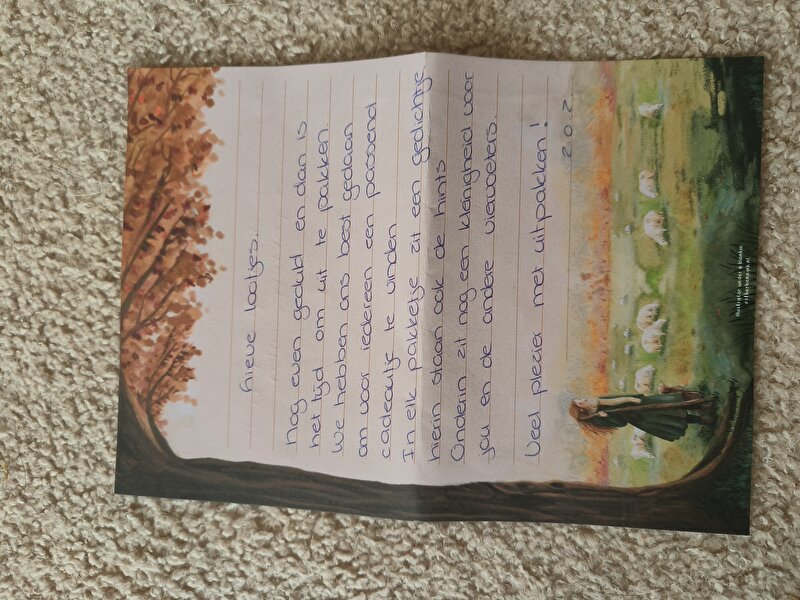 Lieve lootjes,
nog even geduld en dan is
het tijd om uit te pakken.
We hebben ons best gedaan
om voor iedereen een passend
cadeautje te vinden
In elk pakketje zit een gedichtje
hierin staan ook de hints
Onderin zit nog een kleinigheid voor
jou en de andere viervoeters.
Veel plezier met uitpakken!
z.o.z.